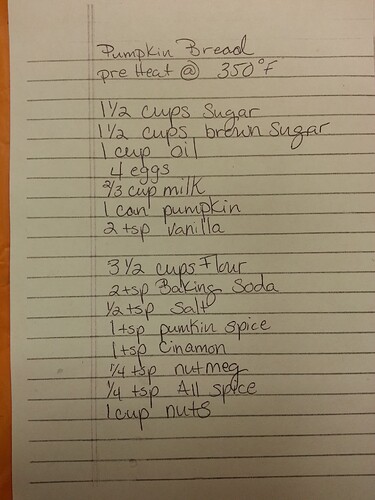 Pumpkin Bread
pre Heat @ 350°F
1 1/2 cups Sugar
1 1/2 cups brown Sugar
1 cup oil
4 eggs
2/3 cup milk
1 can pumpkin
2 tsp vanilla
3 1/2 cups Flour
2 tsp Baking Soda
1/2 tsp Salt
1 tsp pumkin spice
1 tsp Cinamon
1/4 tsp nutmeg
1/4 tsp All spice
1 cup nuts